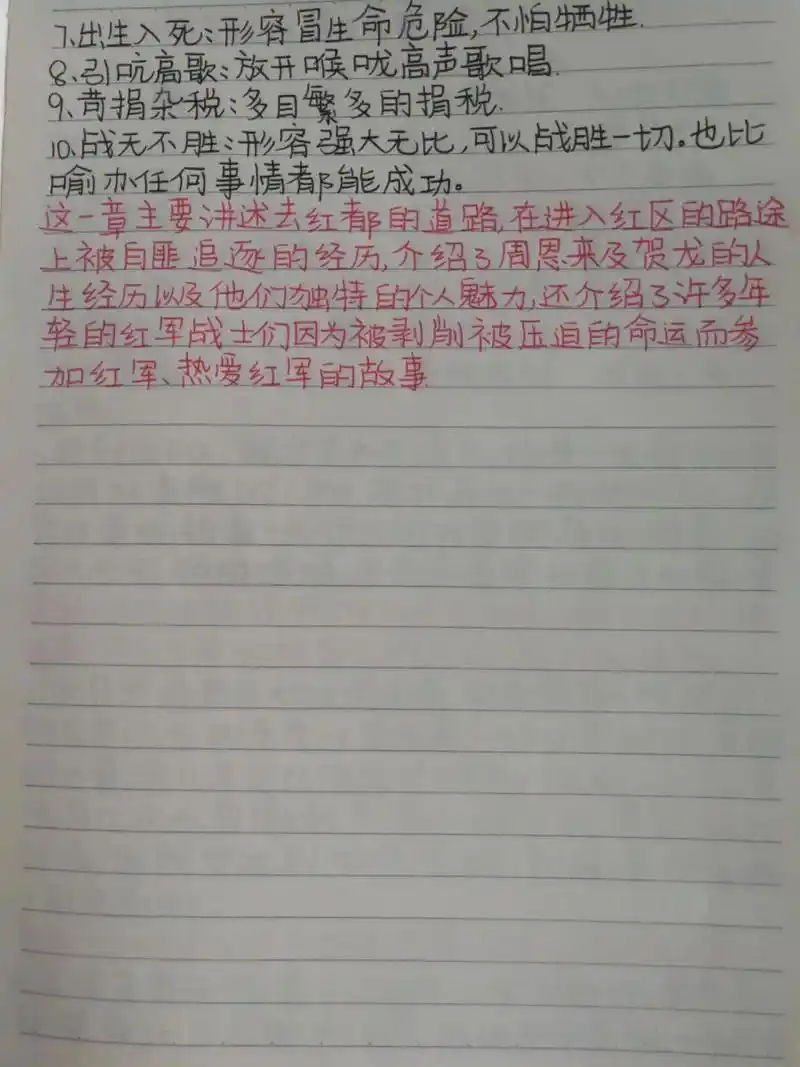 7、出生入死:形容冒生命危险,不怕牺牲.
8、引吭高歌:放开喉咙高声歌唱.
9、苛捐杂税:多目繁多的捐税.
10、战无不胜:形容强大无比,可以战胜一切。也比
喻办任何事情都能成功。
这一章主要讲述去红都的道路,在进入红区的路途
上被白匪追逐的经历,介绍了周恩来及贺龙的人
生经历以及他们独特的个人魅力,还介绍了许多年
轻的红军战士们因为被剥削被压迫的命运而参
加红军、热爱红军的故事.